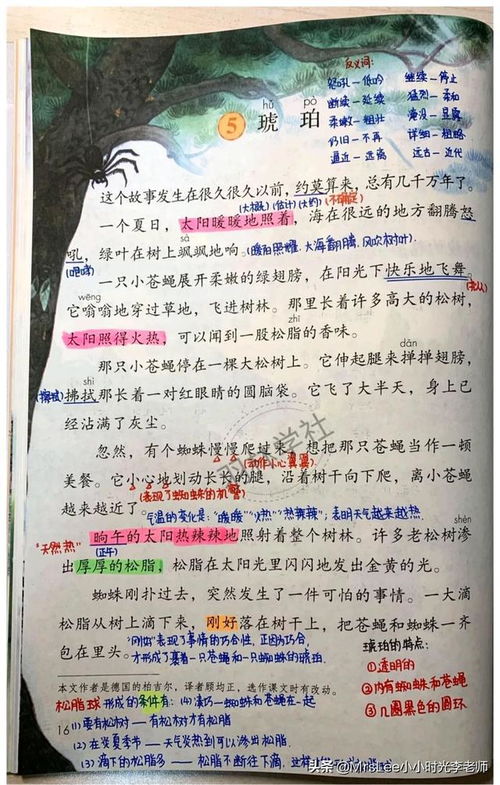 反义词:
怒吼—低吟 继续—停止
断续—延续 猛烈—柔和
柔嫩—粗壮 淹没—显露
仍旧—不再 详细—粗略
逼近—远离 远古—近代
hǔ pò
5 琥珀
这个故事发生在很久很久以前,约莫算来,总有几千万年了。
(大概) (估计) (大约) (不确定)
一个夏日,太阳暖暖地照着,海在很远的地方翻腾怒
sà
吼,绿叶在树上飒飒地响。(暖阳照耀,大海翻腾,风吹树叶)
(咆哮)
一只小苍蝇展开柔嫩的绿翅膀,在阳光下快乐地飞舞。
wēng
它嗡嗡地穿过草地,飞进树林。那里长着许多高大的松树,
zhī
太阳照得火热,可以闻到一股松脂的香味。
dǎn
那只小苍蝇停在一棵大松树上。它伸起腿来掸掸翅膀,
shì
(擦拭) 拂拭那长着一对红眼睛的圆脑袋。它飞了大半天,身上已
经沾满了灰尘。
忽然,有个蜘蛛慢慢爬过来,想把那只苍蝇当作一顿
(动作小心翼翼)
美餐。它小心地划动长长的腿,沿着树干向下爬,离小苍蝇
越来越近了。(表现了蜘蛛的机警)
气温的变化是:“暖暖”“火热”“热辣辣”;表明天气越来越热
shèn
"天然热" 晌午的太阳热辣辣地照射着整个树林。许多老松树渗
(正午)
出厚厚的松脂,松脂在太阳光里闪闪地发出金黄的光。
蜘蛛刚扑过去,突然发生了一件可怕的事情。一大滴
松脂从树上滴下来,刚好落在树干上,把苍蝇和蜘蛛一齐
包在里头。
“刚好”表现了事情的巧合性,正因为巧合,
才形成了裹着一只苍蝇和一只蜘蛛的琥珀.
琥珀的特点:
①透明的
②内有蜘蛛和苍蝇
③几圈黑色的圆环
本文作者是德国的柏吉尔,译者顾均正,选作课文时有改动。
松脂球形成的条件有: (4)凑巧—蜘蛛和苍蝇在一起
16 (1)要有松树—有松树才有松脂
(2)在炎夏季节—天气炎热到可以渗出松脂
(3)滴下的松脂多—松脂不断往下滴,这样
头条@MrsLee小小时光李老师